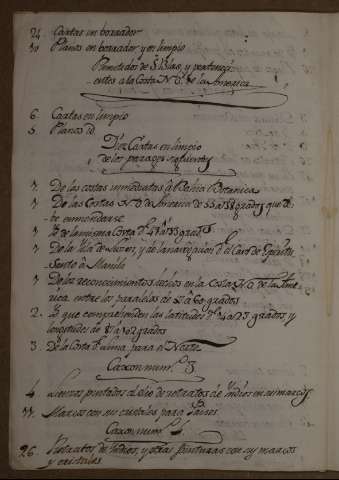 24. Cartas en borrador
30 Planos en borrador y en limpio
Remitidos de S. Blas, y perteneci
entes a la Costa N.O. de la America
6. Cartas en limpio
5. Planos id.
Diez Cartas en limpio
de los parages siguientes
De las costas inmediatas á Bahia Botanica
De las Costas N.O. de America de 55 a 58 grados que de
be enmendarse
de la misma Costa de 48 á 55 grados
De la Isla de y de la navegacion del Cavo de Espiritu
Santo á Manila
De los reconocimientos hechos en la Costa N.O. de la Ame
rica entre los paralelos de a 60 grados
2. que comprehenden las latitudes de 24 a 25 grados y
longitudes de a 102 grados
3. De la Costa para el Norte
Caxon num.º 3
4. Lienzos pintados al olio de retratos de Indios en su marcos
11. Marcos con sus cristales para Paises
Caxon num.º 4
26. Retratos de Indios, y otras pinturas con su marcos
y cristales